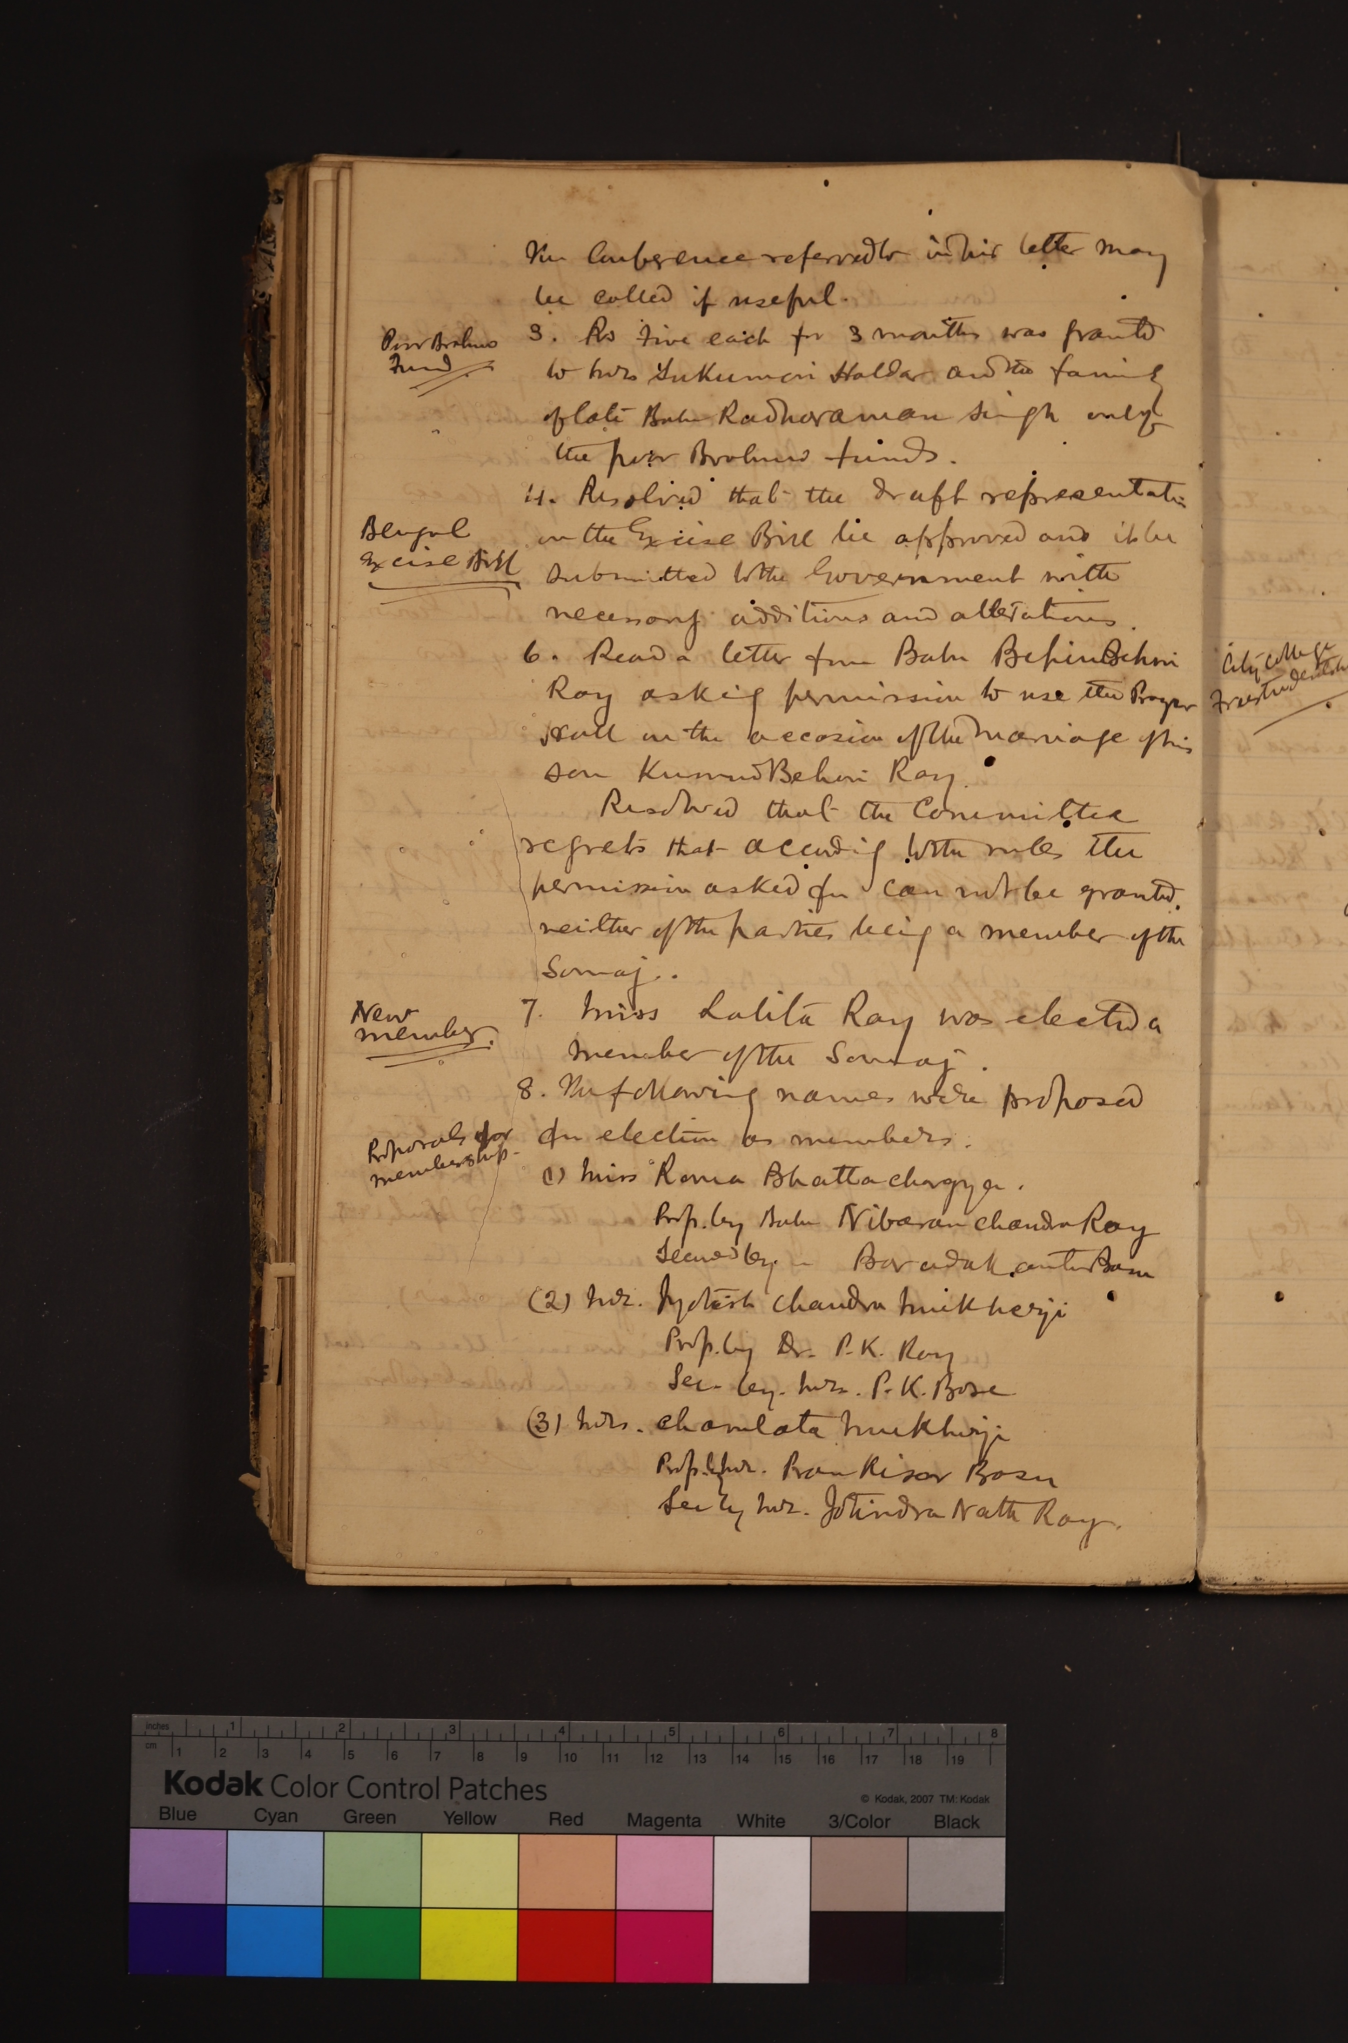 The Conference referred to in his letter may
be called if useful.
Poor Brahmo
Fund
3. Rs Five each for 3 months was grantd
to Mrs Sukumari Haldar and the family
of late Babu Radharaman Singh only
the poor Brahmo funds.
Bengal
Excise Bill
4. Resolved that the draft representatin
on the Excise Bill be approved and it be
submitted to the Government with
necessary additions and alterations.
6. Read a letter from Babu Bepin Behari
Ray asking permission to use the Prayer
Hall on the occasion of the marriage of his
son Kumud Behari Ray.
Resolved that the Committee
regrets that according to the rules the
permission asked for can not be granted,
neither of the parties being a member of the
Samaj..
New
member.
7. Miss Lalita Ray was elected a
member of the Samaj.
8. The following names were proposed
for election as members.
Proposals for
membership.
(1) Miss Roma Bhattachargya.
Prop. by Babu Nibaran Chandra Ray
Second by " Baradakanta Basu
(2) Mr. Jyotish Chandra Mukherji
Prop. by Dr. P. K. Ray
Sec. by. Mrs. P. K. Bose
(3) Mrs. Charulata Mukherji
Prop. by Mr. Pran Kisor Bosu
Sec by Mr. Jotindra Nath Ray.
City College
inches 1 2 3 4 5 6 7 8
cm 1 2 3 4 5 6 7 8 9 10 11 12 13 14 15 16 17 18 19
Kodak Color Control Patches
© Kodak, 2007 TM: Kodak
Blue Cyan Green Yellow Red Magenta White 3/Color Black